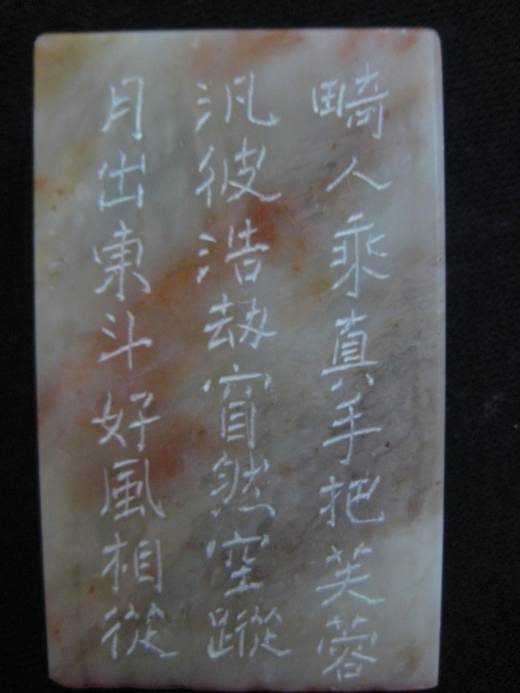 畸人乘真手把芙蓉
汎彼浩劫窅然空蹤
月出東斗好風相從